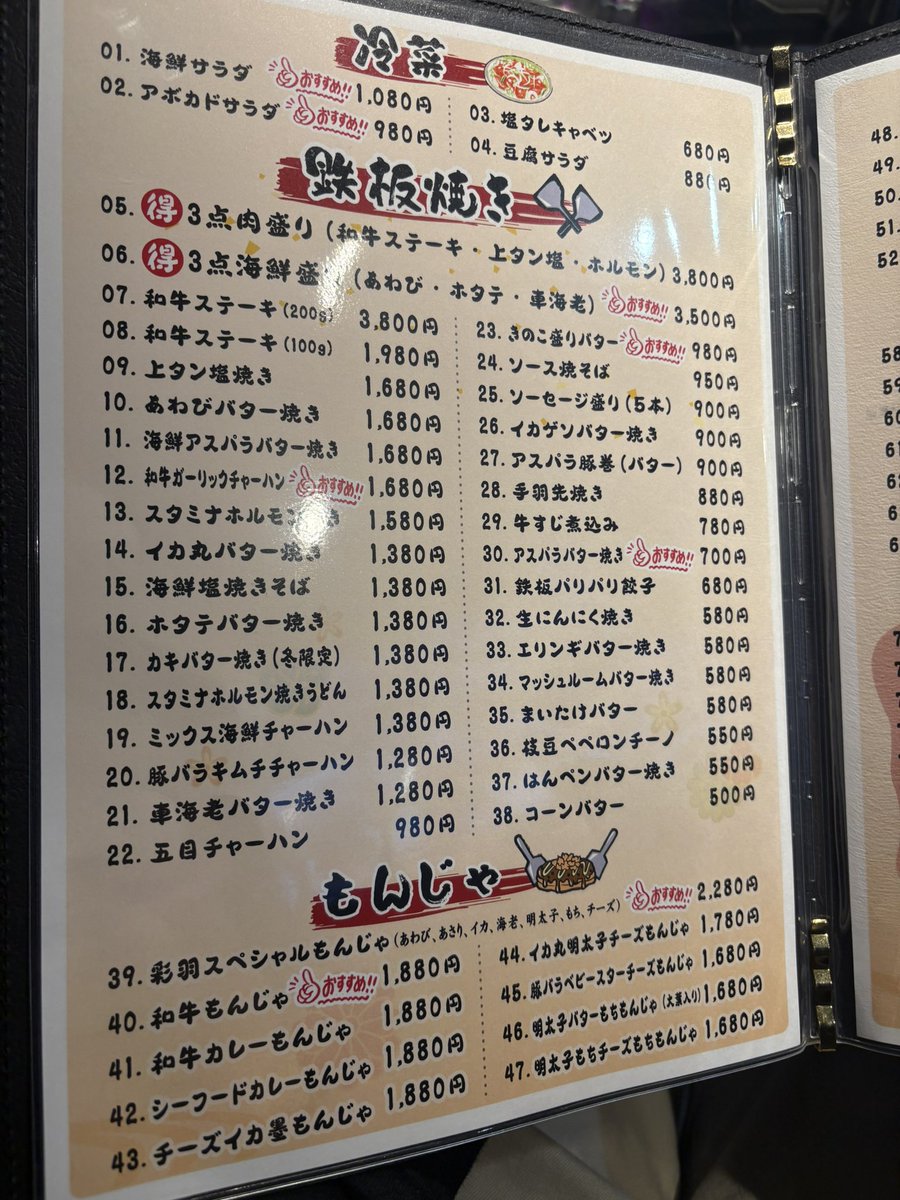 冷菜
01. 海鮮サラダ おすすめ!! 1,080円
02. アボカドサラダ おすすめ!! 980円
03. 塩タレキャベツ 680円
04. 豆腐サラダ 880円
鉄板焼き
05. 得 3点肉盛り (和牛ステーキ・上タン塩・ホルモン) 3,800円
06. 得 3点海鮮盛 (あわび・ホタテ・車海老) おすすめ!! 3,500円
07. 和牛ステーキ (200g) 3,800円
08. 和牛ステーキ (100g) 1,980円
09. 上タン塩焼き 1,680円
10. あわびバター焼き 1,680円
11. 海鮮アスパラバター焼き 1,680円
12. 和牛ガーリックチャーハン おすすめ!! 1,680円
13. スタミナホルモン焼き 1,580円
14. イカ丸バター焼き 1,380円
15. 海鮮塩焼きそば 1,380円
16. ホタテバター焼き 1,380円
17. カキバター焼き (冬限定) 1,380円
18. スタミナホルモン焼きうどん 1,380円
19. ミックス海鮮チャーハン 1,380円
20. 豚バラキムチチャーハン 1,280円
21. 車海老バター焼き 1,280円
22. 五目チャーハン 980円
23. きのこ盛りバター おすすめ!! 980円
24. ソース焼そば 950円
25. ソーセージ盛り (5本) 900円
26. イカゲソバター焼き 900円
27. アスパラ豚巻 (バター) 900円
28. 手羽先焼き 880円
29. 牛すじ煮込み 780円
30. アスパラバター焼き おすすめ!! 700円
31. 鉄板パリパリ餃子 680円
32. 生にんにく焼き 580円
33. エリンギバター焼き 580円
34. マッシュルームバター焼き 580円
35. まいたけバター 580円
36. 枝豆ペペロンチーノ 550円
37. はんペンバター焼き 550円
38. コーンバター 500円
もんじゃ
39. 彩羽スペシャルもんじゃ (あわび、あさり、イカ、海老、明太子、もち、チーズ) おすすめ!! 2,280円
40. 和牛もんじゃ おすすめ!! 1,880円
41. 和牛カレーもんじゃ 1,880円
42. シーフードカレーもんじゃ 1,880円
43. チーズイカ墨もんじゃ 1,880円
44. イカ丸明太子チーズもんじゃ 1,780円
45. 豚バラベビースターチーズもんじゃ 1,680円
46. 明太子バターもちもんじゃ (大葉入り) 1,680円
47. 明太子もちチーズもちもんじゃ 1,680円
48.
49.
50.
51.
52
58
59
60
61